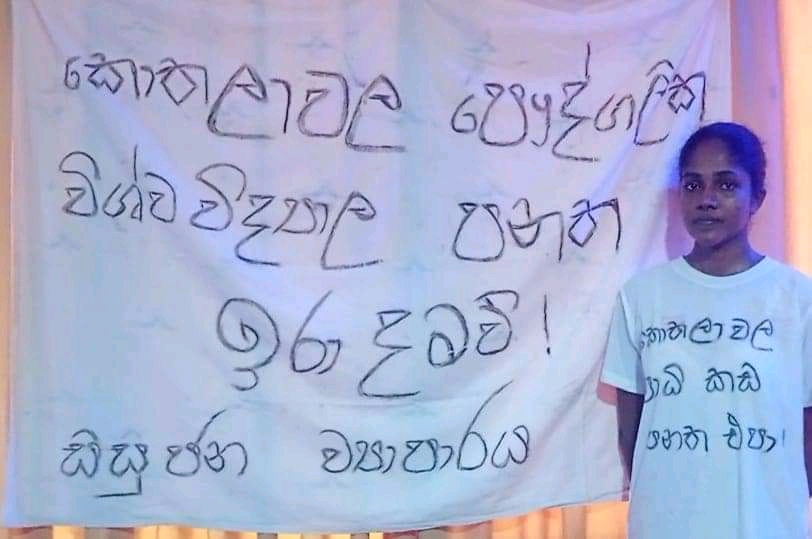 කොතලාවල පෞද්ගලික
විශ්ව විද්‍යාල පනත
ඉරා දමව්!
සිසු ජන ව්‍යාපාරය
කොතලාවල
පාධි කඩ
පනත එපා!